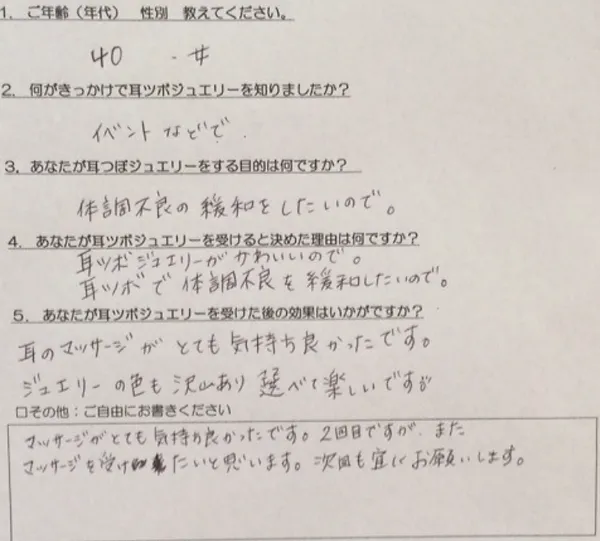 1. ご年齢（年代）　性別　教えてください。
40 . 女
2. 何がきっかけで耳ツボジュエリーを知りましたか？
イベントなどで.
3. あなたが耳つぼジュエリーをする目的は何ですか？
体調不良の緩和をしたいので。
4. あなたが耳ツボジュエリーを受けると決めた理由は何ですか？
耳ツボジュエリーがかわいいので。
耳ツボで体調不良を緩和したいので。
5. あなたが耳ツボジュエリーを受けた後の効果はいかがですか？
耳のマッサージがとても気持ち良かったです。
ジュエリーの色も沢山あり選べて楽しいです
口その他：ご自由にお書きください
マッサージがとても気持ち良かったです。2回目ですが、また
マッサージを受けたいと思います。次回も宜しくお願いします。